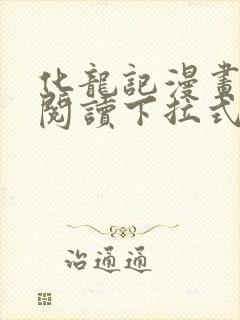 化龍記漫畫
閱讀下拉式
治通通